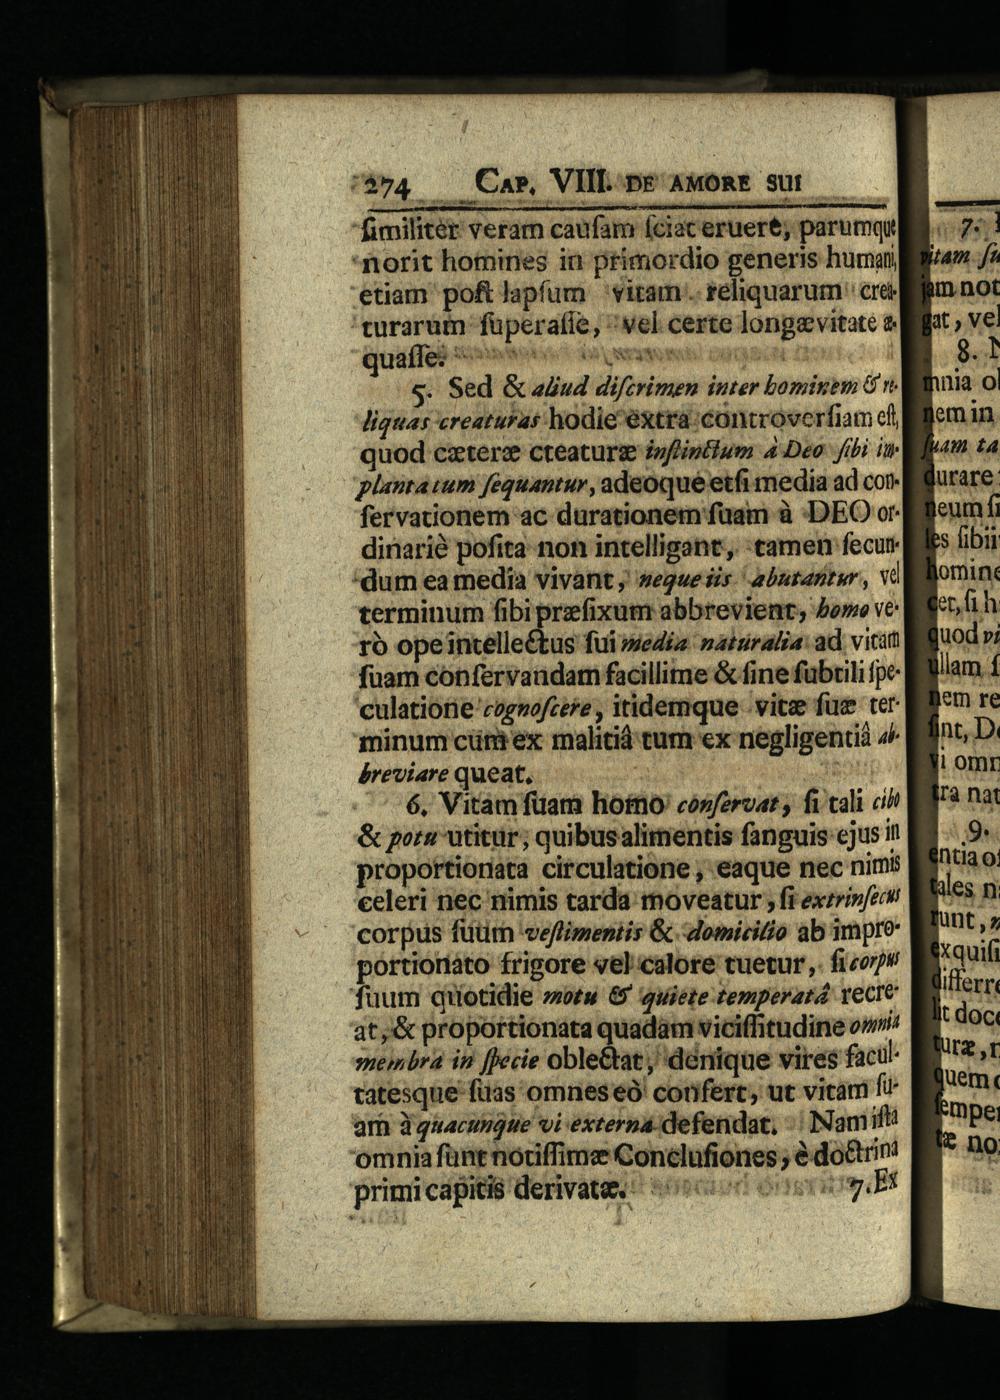 274 CAP. VIII. DE AMORE SUI
ſimiliter veram cauſam ſciat eruere, parumque
norit homines in primordio generis humani,
etiam poſt lapſum vitam reliquarum crea-
turarum ſuperaſſe, vel certe longævitate æ-
quaſſe.
5. Sed & aliud diſcrimen inter hominem & re-
liquas creaturas hodie extra controverſiam eſt,
quod cæteræ cteaturæ inſtinctum à Deo ſibi im-
plantatum ſequantur, adeoque etſi media ad con-
ſervationem ac durationem ſuam à DEO or-
dinariè poſita non intelligant, tamen ſecun-
dum ea media vivant, neque iis abutantur, vel
terminum ſibi præfixum abbrevient, homo ve-
rò ope intellectus ſui media naturalia ad vitam
ſuam conſervandam facillime & ſine ſubtili ſpe-
culatione cognoſcere, itidemque vitæ ſuæ ter-
minum cum ex malitiâ tum ex negligentiâ ab-
breviare queat.
6. Vitam ſuam homo conſervat, ſi tali cibo
& potu utitur, quibus alimentis ſanguis ejus in
proportionata circulatione, eaque nec nimis
celeri nec nimis tarda moveatur, ſi extrinſecus
corpus ſuum veſtimentis & domicilio ab impro-
portionato frigore vel calore tuetur, ſi corpus
ſuum quotidie motu & quiete temperatâ recre-
at, & proportionata quadam viciſſitudine omnia
membra in ſpecie oblectat, denique vires facul-
tatesque ſuas omnes eò confert, ut vitam ſu-
am à quacunque vi externa defendat. Nam iſta
omnia ſunt notiſſimæ Concluſiones, è doctrina
primi capitis derivatæ.
7. Ex
7.
vitam
jam not
gat, vel
8.
omnia
nem in
ſuam
durare
neum
les ſibi
homine
cet, ſi h
quod
ullam
nem re
ſint,
vi omn
tra nat
9.
entia
tales
runt,
exquiſi
differre
lit doce
turæ,
quem
ſemper
tæ